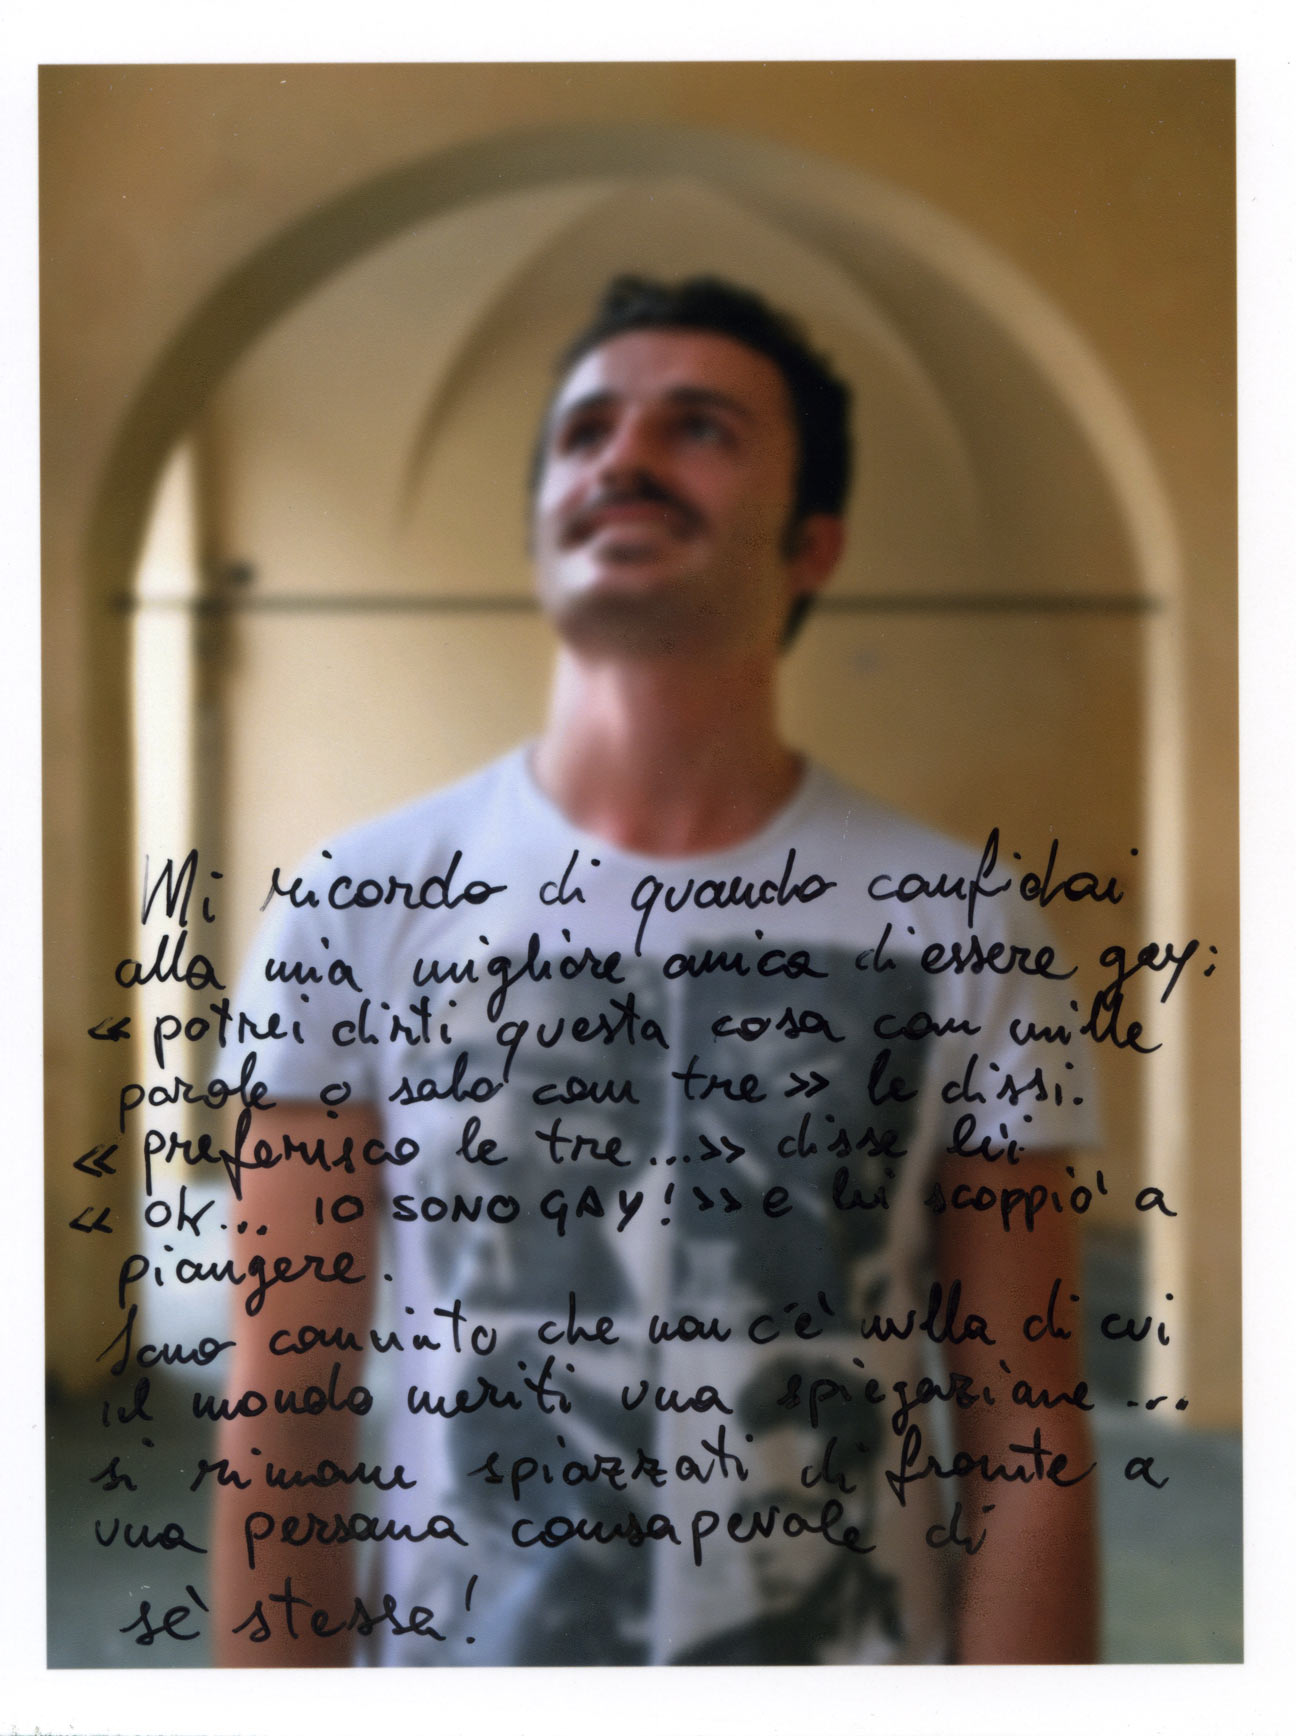 Mi ricordo di quando confidai
alla mia migliore amica di essere gay:
« potrei dirti questa cosa con mille
parole o solo con tre » le dissi.
« preferisco le tre...» disse lei
« ok... IO SONO GAY! » e lui scoppiò a
piangere.
Sono convinto che non c'è nulla di cui
il mondo meriti una spiegazione ...
si rimane spiazzati di fronte a
una persona consapevole di
sè stessa!